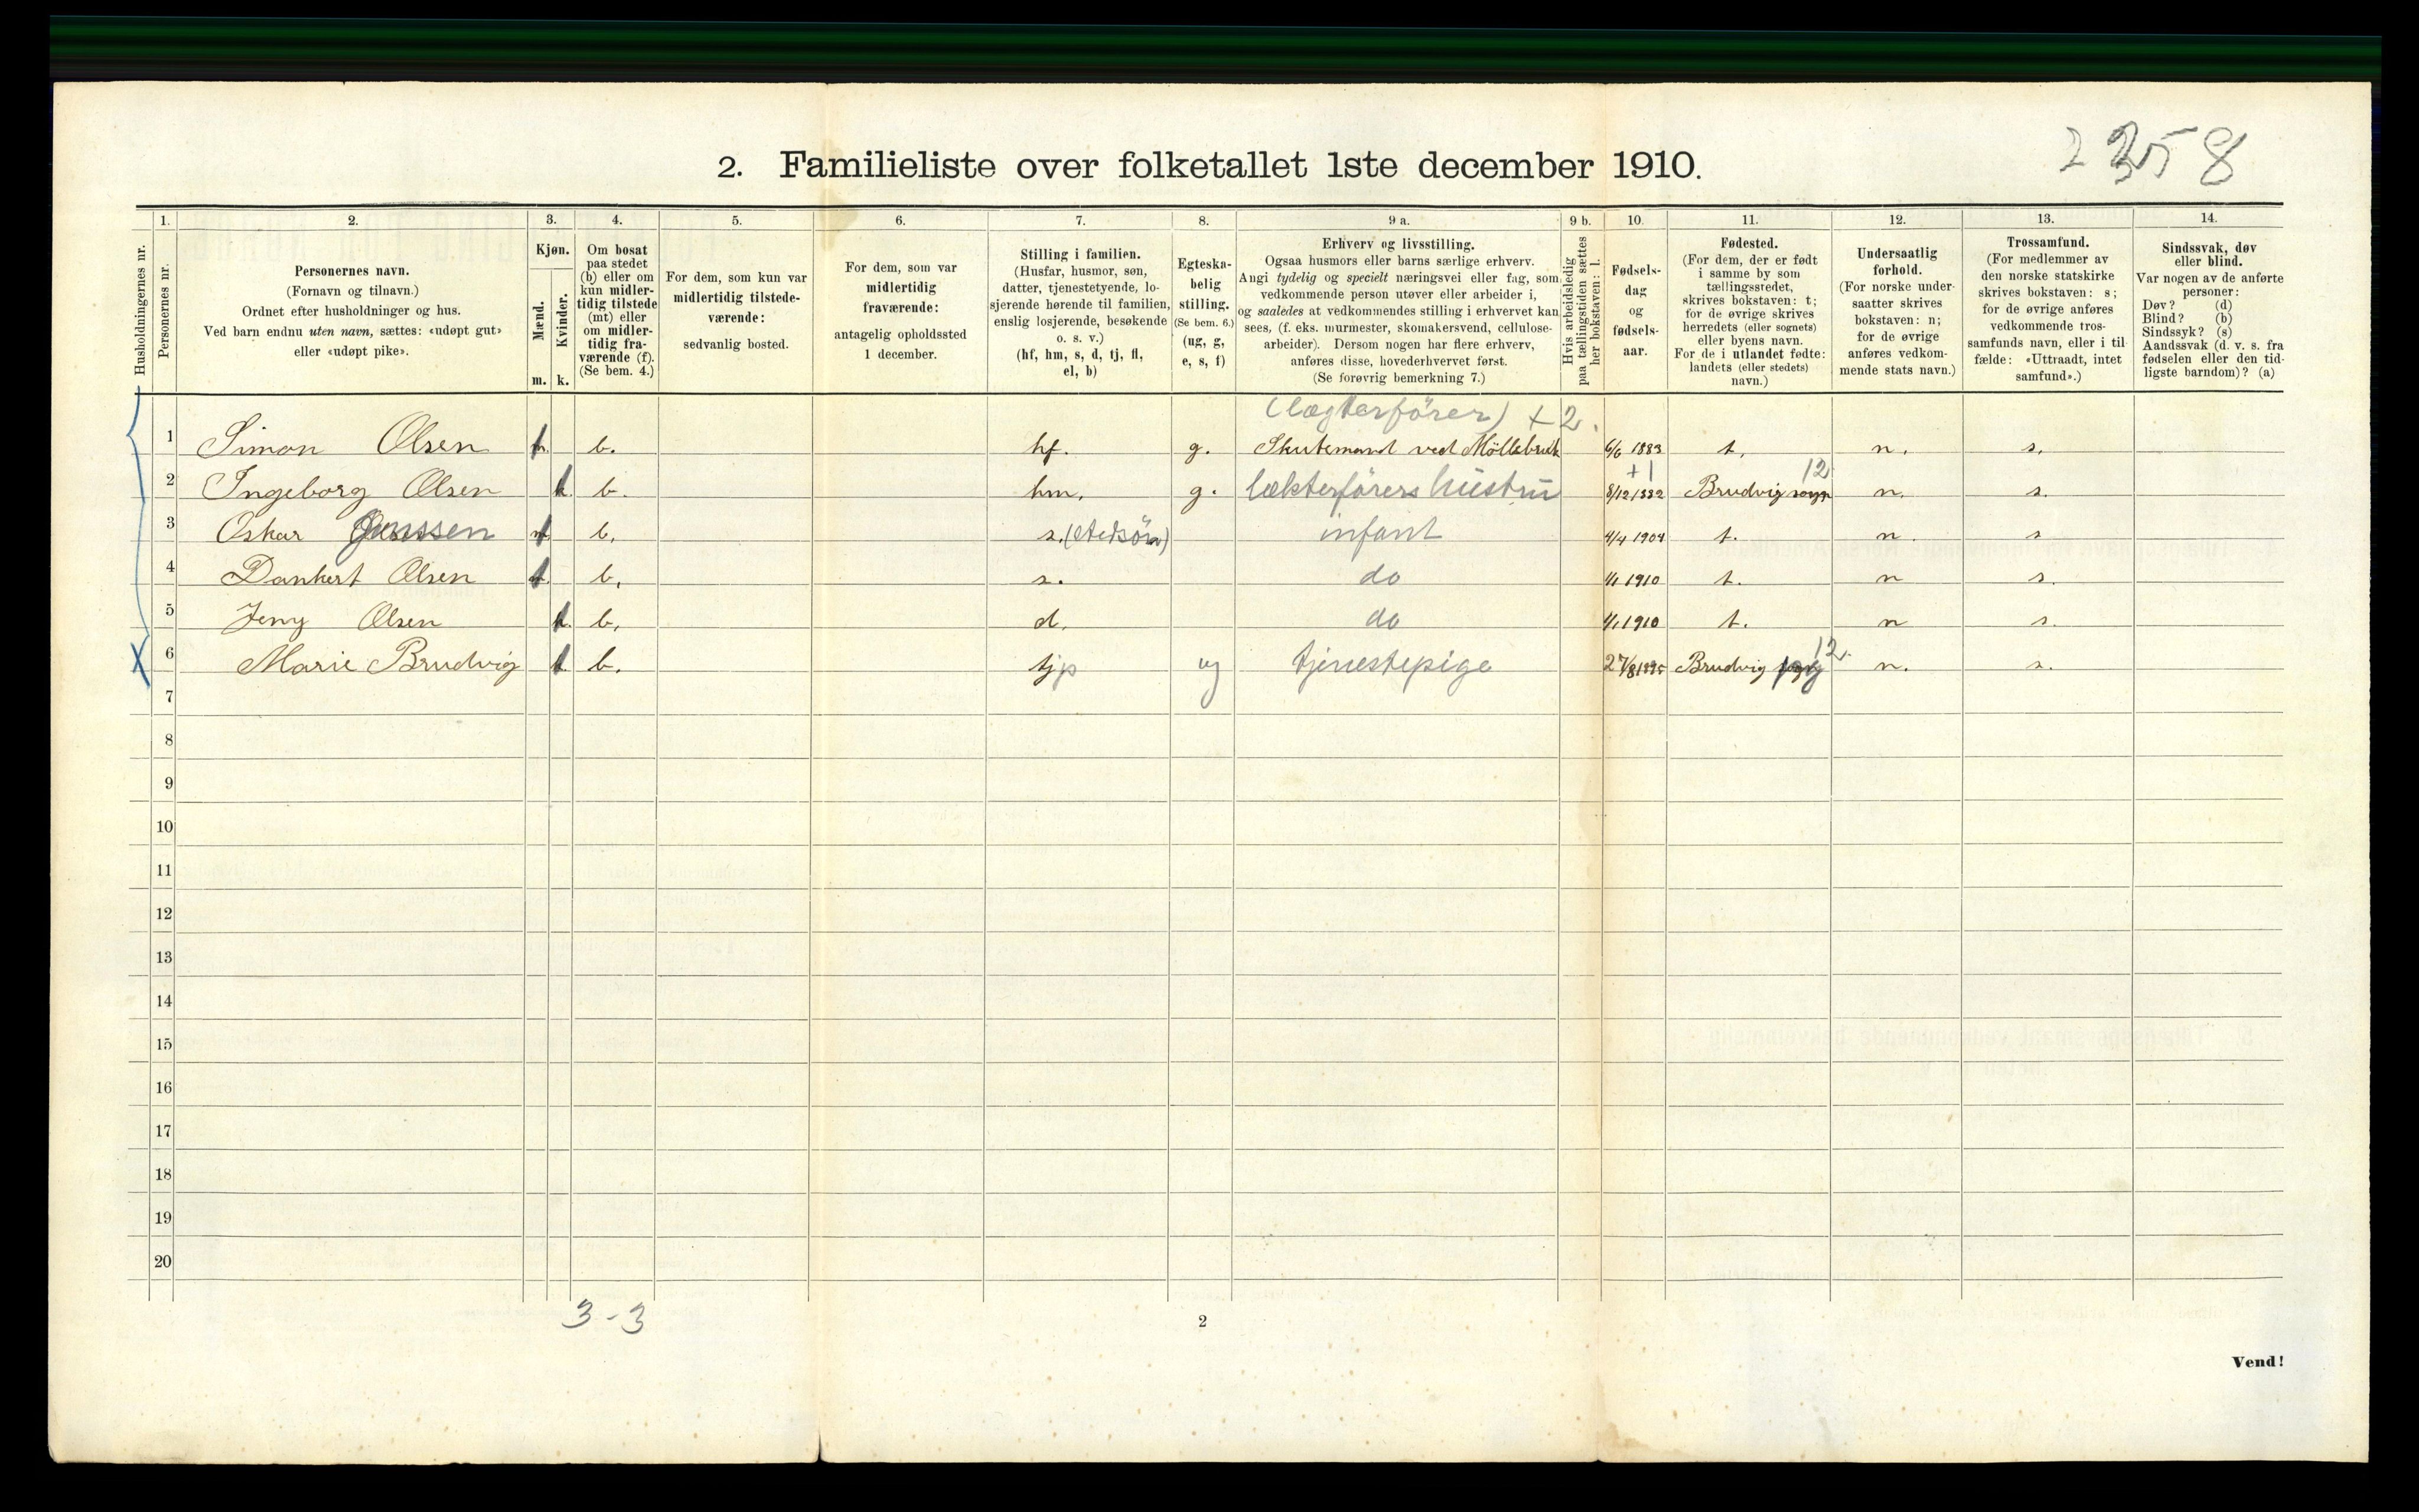 2358
2. Familieliste over folketallet 1ste december 1910.
1. 2. 3. 4. 5. 6. 7. 8. 9 a. 9 b. 10. 11. 12. 13. 14.
Husholdningernes nr.
Personernes nr.
Personernes navn.
(Fornavn og tilnavn.)
Ordnet efter husholdninger og hus.
Ved barn endnu uten navn, sættes: «udøpt gut»
eller «udøpt pike».
Kjøn.
Mænd.
Kvinder.
m. k.
Om bosat
paa stedet
(b) eller om
kun midler-
tidig tilstede
(mt) eller
om midler-
tidig fra-
værende (f).
(Se bem. 4.)
For dem, som kun var
midlertidig tilstede-
værende:
sedvanlig bosted.
For dem, som var
midlertidig
fraværende:
antagelig opholdssted
1 december.
Stilling i familien.
(Husfar, husmor, søn,
datter, tjenestetyende, lo-
sjerende hørende til familien,
enslig losjerende, besøkende
o. s. v.)
(hf, hm, s, d, tj, fl,
el, b)
Egteska-
belig
stilling.
(Se bem. 6.)
(ug, g,
e, s, f)
Erhverv og livsstilling.
Ogsaa husmors eller barns særlige erhverv.
Angi tydelig og specielt næringsvei eller fag, som
vedkommende person utøver eller arbeider i,
og saaledes at vedkommendes stilling i erhvervet kan
sees, (f. eks. murmester, skomakersvend, cellulose-
arbeider). Dersom nogen har flere erhverv,
anføres disse, hovederhvervet først.
(Se forøvrig bemerkning 7.)
Hvis arbeidsledig
paa tællingstiden sættes
her bokstaven: l.
Fødsels-
dag
og
fødsels-
aar.
Fødested.
(For dem, der er født
i samme by som
tællingsstedet,
skrives bokstaven: t;
for de øvrige skrives
herredets (eller sognets)
eller byens navn.
For de i utlandet fødte:
landets (eller stedets)
navn.)
Undersaatlig
forhold.
(For norske under-
saatter skrives
bokstaven: n;
for de øvrige
anføres vedkom-
mende stats navn.)
Trossamfund.
(For medlemmer av
den norske statskirke
skrives bokstaven: s;
for de øvrige anføres
vedkommende tros-
samfunds navn, eller i til-
fælde: «Uttraadt, intet
samfund».)
Sindssvak, døv
eller blind.
Var nogen av de anførte
personer:
Døv? (d)
Blind? (b)
Sindssyk? (s)
Aandssvak (d. v. s. fra
fødselen eller den tid-
ligste barndom)? (a)
(lægterförer) +2.
1 Simon Olsen m. b. hf. g. Skutemand ved Möllebruk 6/6 1883 t. n. s.
+1 12
2 Ingeborg Olsen k. b. hm. g. lækterförers hustru 8/12 1882 Brudvig sogn n. s.
3 Oskar Janssen m b. s. (stedsön) infant 4/4 1904 t. n. s
4 Dankert Olsen b. s. do 4/1 1910 t. n s.
5 Jeny Olsen k. b. d. do 4/1 1910 t. n s.
12.
6 Marie Brudvig k b. tjp ug tjenestepige 27/8 Brudvig n. s.
7
8
9
10
11
12
13
14
15
16
17
18
19
20
3-3
2
Vend!